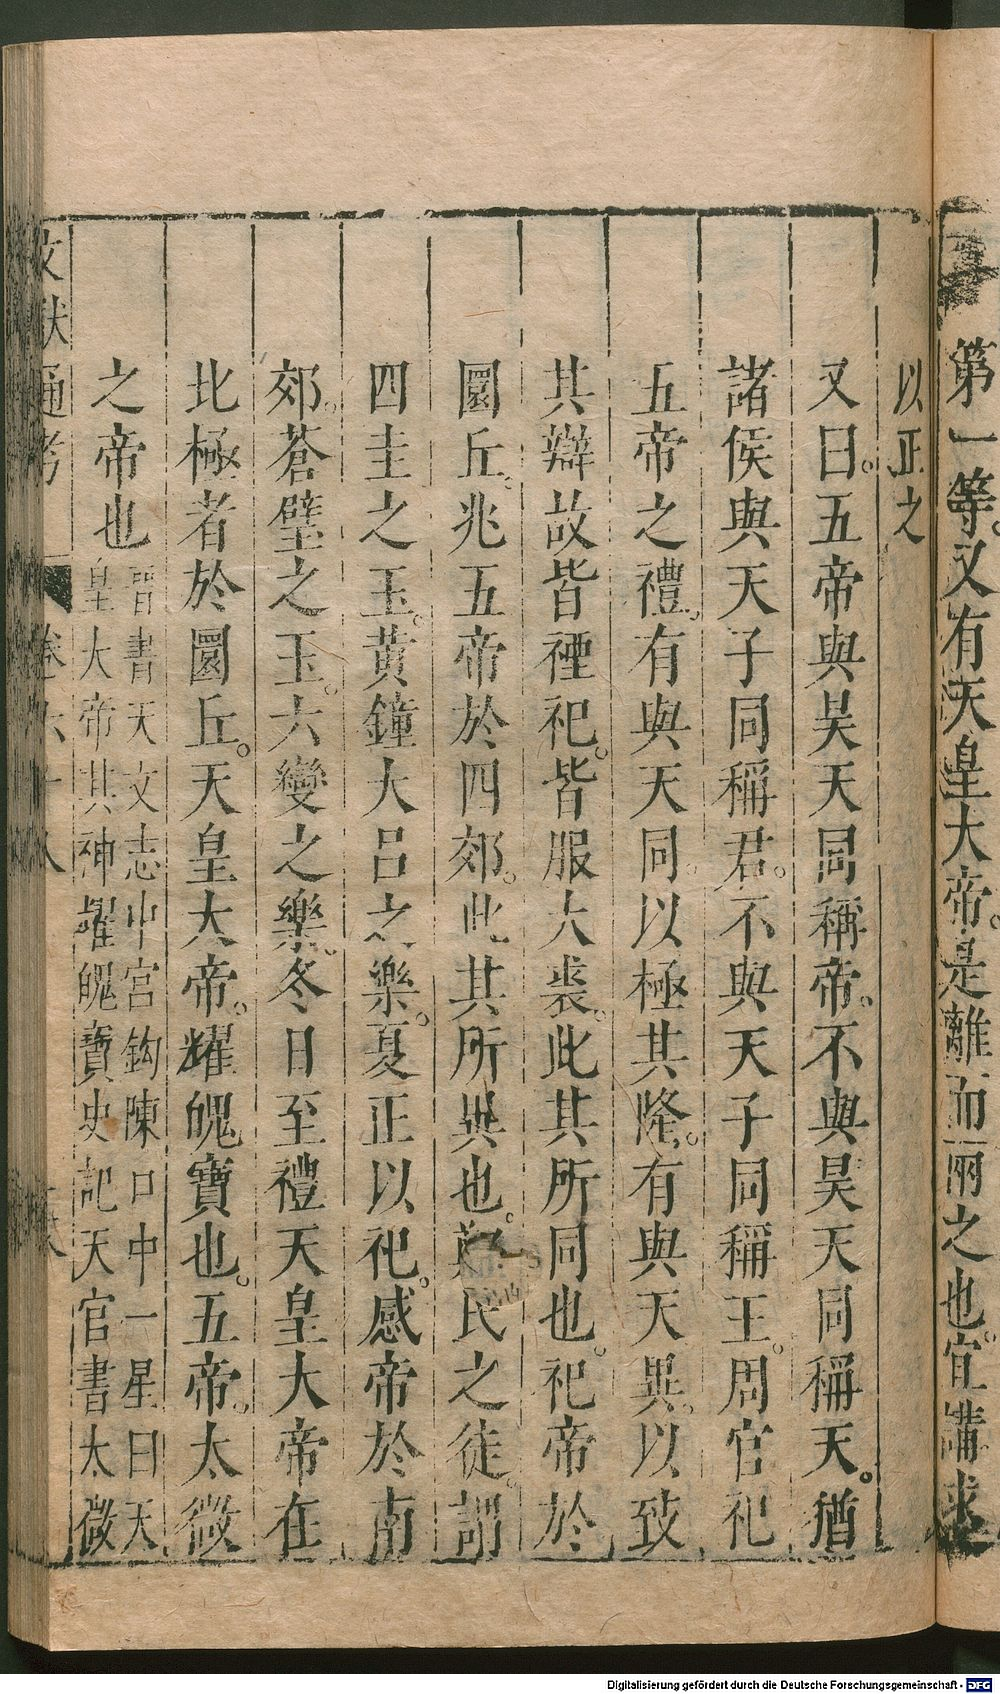 第一等。又有天皇大帝。是離而兩之也。宜講求
以正之
又曰。五帝與昊天同稱帝。不與昊天同稱天。猶
諸侯與天子同稱君。不與天子同稱王。周官祀
五帝之禮。有與天同。以極其隆。有與天異。以致
其辯故皆禋祀。皆服大裘。此其所同也。祀帝於
圜丘。兆五帝於四郊。此其所異也。民之徒。謂
四圭之玉。黃鐘大呂之樂。夏正以祀。感帝於南
郊。蒼璧之玉。六變之樂。冬日至禮天皇大帝在
北極者於圜丘。天皇大帝。耀魄寶也。五帝。太微
之帝也
晉書天文志中宮鈎陳口中一星曰天
皇大帝其神耀魄寶史記天官書太微
文獻通考 卷六十八
Digitalisierung gefördert durch die Deutsche Forschungsgemeinschaft - DFG